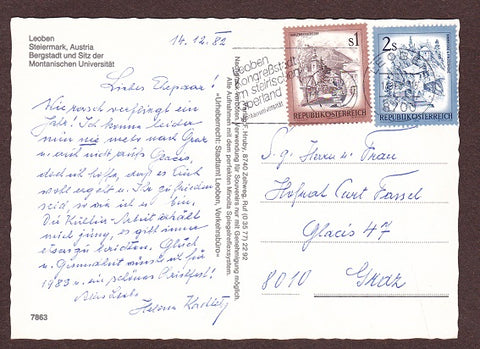 Leoben
Steiermark, Austria
Bergstadt und Sitz der
Montanistischen Universität
14.12.82
Liebes Ehepaar!
Wie rasch verfliegt ein
Jahr! Ich komme leider
nun nie mehr nach Graz
u. auch nicht aufs Glacis,
doch ich hoffe, daß es Euch
wohl ergeht u. Ihr zufrieden
seid, so wie ich
Die Arbeit erhält
mich jung, es gibt immer
etwas zu berichten. Glück
u. Gesundheit wünsche ich für
1983 u. ein schönes Christfest!
Alles Liebe
Helene
7863
Nachdruck verboten, Verwendung für Souveniers nur mit Genehmigung möglich.
Hruby, 8740 Zeltweg, Ruf (0 35 77) 25 92
Alle Aufnahmen mit dem perfekten Minolta Spiegelreflexsystem.
»Urheberrecht: Stadtamt Leoben, Verkehrsbüro«
Leoben
Kongreßstadt
im steirischen
Oberland
s1
REPUBLIK ÖSTERREICH
2s
REPUBLIK ÖSTERREICH
S. g. Herrn u. Frau
Hofrat Curt Fassel
Glacis 47
8010 Graz